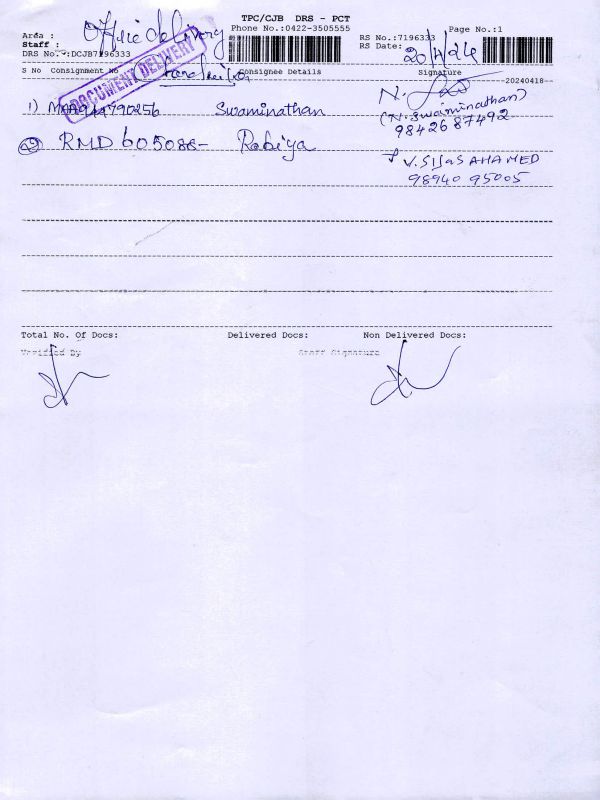 TPC/CJB DRS - PCT
Phone No.:0422-3505555
Page No.:1
Area : Office delivery
RS No.:7196333
Staff :
RS Date: 20/4/24
DRS No.:DCJB7196333
DOCUMENT DELIVERY
S No Consignment No Consignee Details Signature
20240418
1) Swaminathan N.
(N. Swaminathan)
9842687492
2) RMD Rabiya V. SIJAS AHAMED
98940 95005
Total No. Of Docs: Delivered Docs: Non Delivered Docs:
Verified By Staff Signature